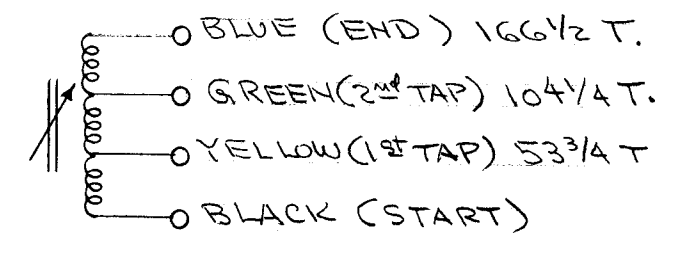 BLUE (END) 166 1/2 T.
GREEN (2nd TAP) 104 1/4 T.
YELLOW (1st TAP) 53 3/4 T
BLACK (START)